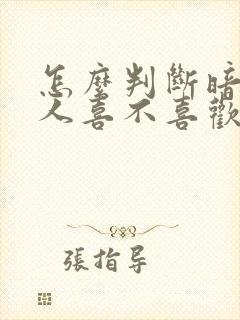 怎麼判斷暗
人喜不喜歡
張指导